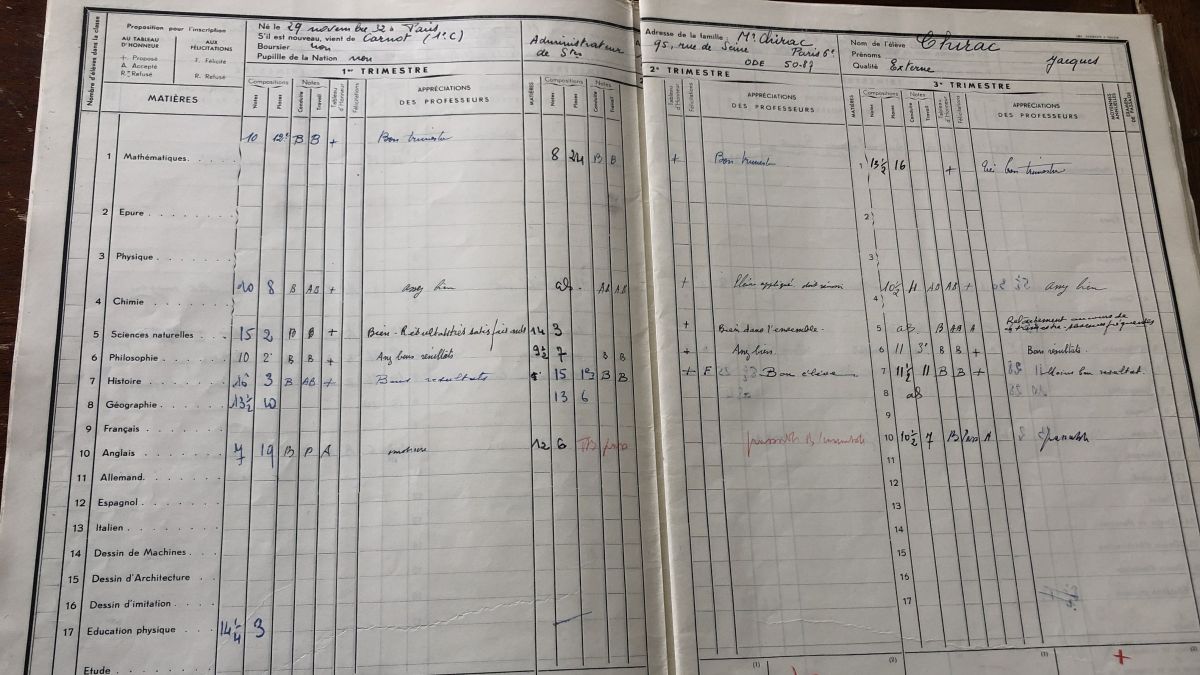 Proposition pour l'inscription
AU TABLEAU D'HONNEUR
AUX FÉLICITATIONS
+. Proposé
A. Accepté
R. Refusé
F. Félicité
R. Refusé
Nombre d'élèves dans la classe
MATIÈRES
Né le 29 novembre 32 à Paris
S'il est nouveau, vient de Carnot (1e C)
Boursier non
Pupille de la Nation non
Administrateur
de Stés
Adresse de la famille : Mr Chirac
95, rue de Seine Paris 6e
ODE 50-89
Nom de l'élève Chirac
Prénoms Jacques
Qualité Externe
1er TRIMESTRE
2e TRIMESTRE
3e TRIMESTRE
Compositions Notes
Notes Places Conduite Travail Tableau d'Honneur Félicitations
APPRÉCIATIONS DES PROFESSEURS
MATIÈRES
Compositions Notes
Notes Places Conduite Travail Tableau d'Honneur Félicitations
APPRÉCIATIONS DES PROFESSEURS
MATIÈRES
Compositions Notes
Notes Places Conduite Travail Tableau d'Honneur Félicitations
APPRÉCIATIONS DES PROFESSEURS
MOYENNES ANNUELLES
EXAMEN DE PASSAGE
1 Mathématiques 10 12e B B + Bon trimestre 8 24 B B + Bon trimestre 1 13 1/2 16 + Très bon trimestre
2 Epure 2
3 Physique 3
4 Chimie 10 8 B AB + assez bien ab. AB AB + 4 10 1/2 11 AB AB + assez bien
5 Sciences naturelles 15 2 B B + Bien - Résultats très satisfaisants 14 3 + Bien dans l'ensemble. 5 ab. B AB A
6 Philosophie 10 2e B B + Assez bons résultats 9 1/2 7 B B + Assez bien 6 11 3e B B + Bons résultats.
7 Histoire 16 3 B AB + Bons résultats 15 B B + F Bon élève 7 11 1/2 11 B B + Moins bon résultat.
8 Géographie 13 1/2 10 13 6 8 ab
9 Français
10 Anglais 7 19 B P A 12 6 TB passable 10 10 1/2 7 B Pass A Passable
11 Allemand 11
12 Espagnol 12
13 Italien 13
14 Dessin de Machines 14
15 Dessin d'Architecture 15
16 Dessin d'imitation 16
17 Education physique 14 1/4 3 17
Etude
(1) (2) (3)
+